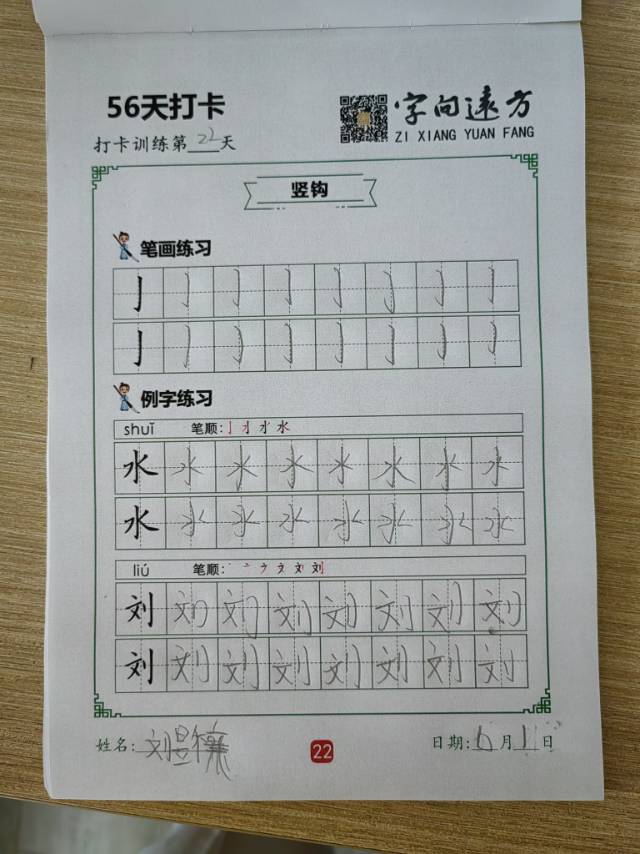 56天打卡
字向遠方
ZI XIANG YUAN FANG
打卡训练第22天
竖钩
笔画练习
亅亅亅亅亅亅亅亅
亅亅亅亅亅亅亅亅
例字练习
shuǐ 笔顺:
水水水水水水水水
水水水水水水水水
liú 笔顺:
刘刘刘刘刘刘刘刘
刘刘刘刘刘刘刘刘
姓名: 刘
22
日期: 6月1日